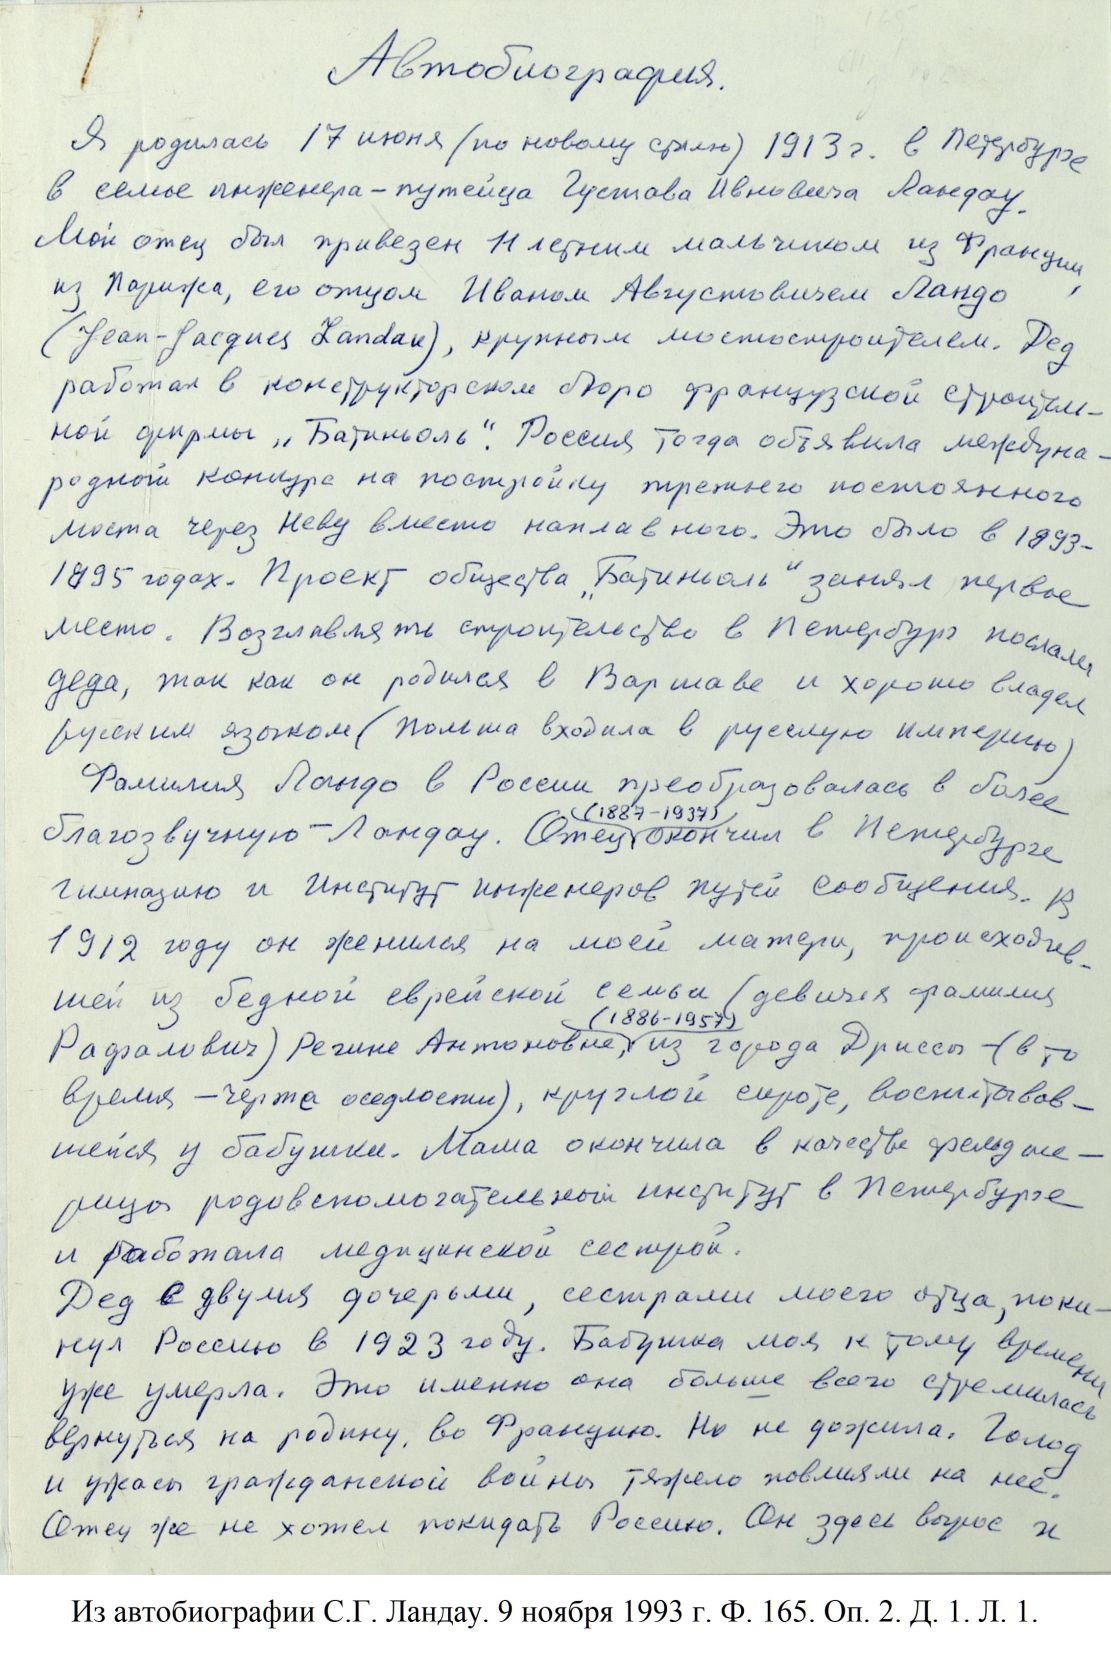 Автобиография.
Я родилась 17 июня (по новому стилю) 1913 г. в Петербурге
в семье инженера-путейца Густава Ивновича Ландау.
Мой отец был привезен 11 летним мальчиком из Франции,
из Парижа, его отцом Иваном Августовичем Ландо
(Jean-Jacques Landau), крупным мостостроителем. Дед
работал в конструкторском бюро французской строитель-
ной фирмы „Батиньоль". Россия тогда объявила междуна-
родный конкурс на постройку третьего постоянного
моста через Неву вместо наплавного. Это было в 1893-
1895 годах. Проект общества „Батиньоль" занял первое
место. Возглавлять строительство в Петербург послали
деда, так как он родился в Варшаве и хорошо владел
русским языком (Польша входила в русскую империю)
Фамилия Ландо в России преобразовалась в более
(1887-1937)
благозвучную – Ландау. Отец окончил в Петербурге
гимназию и Институт инженеров путей сообщения. В
1912 году он женился на моей матери, происходив-
шей из бедной еврейской семьи (девичья фамилия
(1886-1957)
Рафалович) Регине Антоновне, из города Дриссы – (в то
время – черта оседлости), круглой сироте, воспитывав-
шейся у бабушки. Мама окончила в качестве фельдше-
рицы родовспомогательный институт в Петербурге
и работала медицинской сестрой.
Дед с двумя дочерьми, сестрами моего отца, поки-
нул Россию в 1923 году. Бабушка моя к тому времени
уже умерла. Это именно она больше всего стремилась
вернуться на родину, во Францию. Но не дожила. Голод
и ужасы гражданской войны тяжело повлияли на неё.
Отец же не хотел покидать Россию. Он здесь вырос и
Из автобиографии С.Г. Ландау. 9 ноября 1993 г. Ф. 165. Оп. 2. Д. 1. Л. 1.